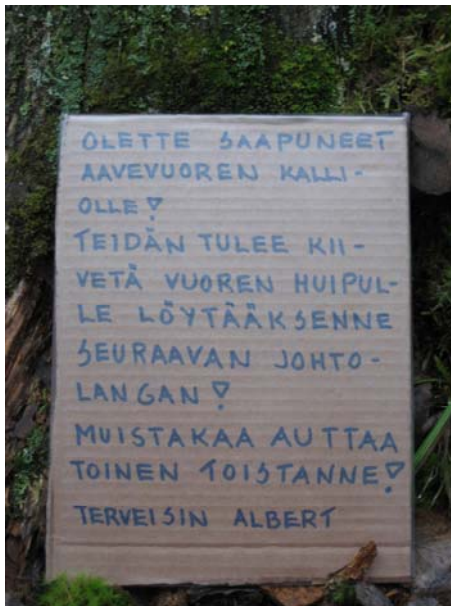 OLETTE SAAPUNEET
AAVEVUOREN KALLI-
OLLE!
TEIDÄN TULEE KII-
VETÄ VUOREN HUIPUL-
LE LÖYTÄÄKSENNE
SEURAAVAN JOHTO-
LANGAN!
MUISTAKAA AUTTAA
TOINEN TOISTANNE!
TERVEISIN ALBERT